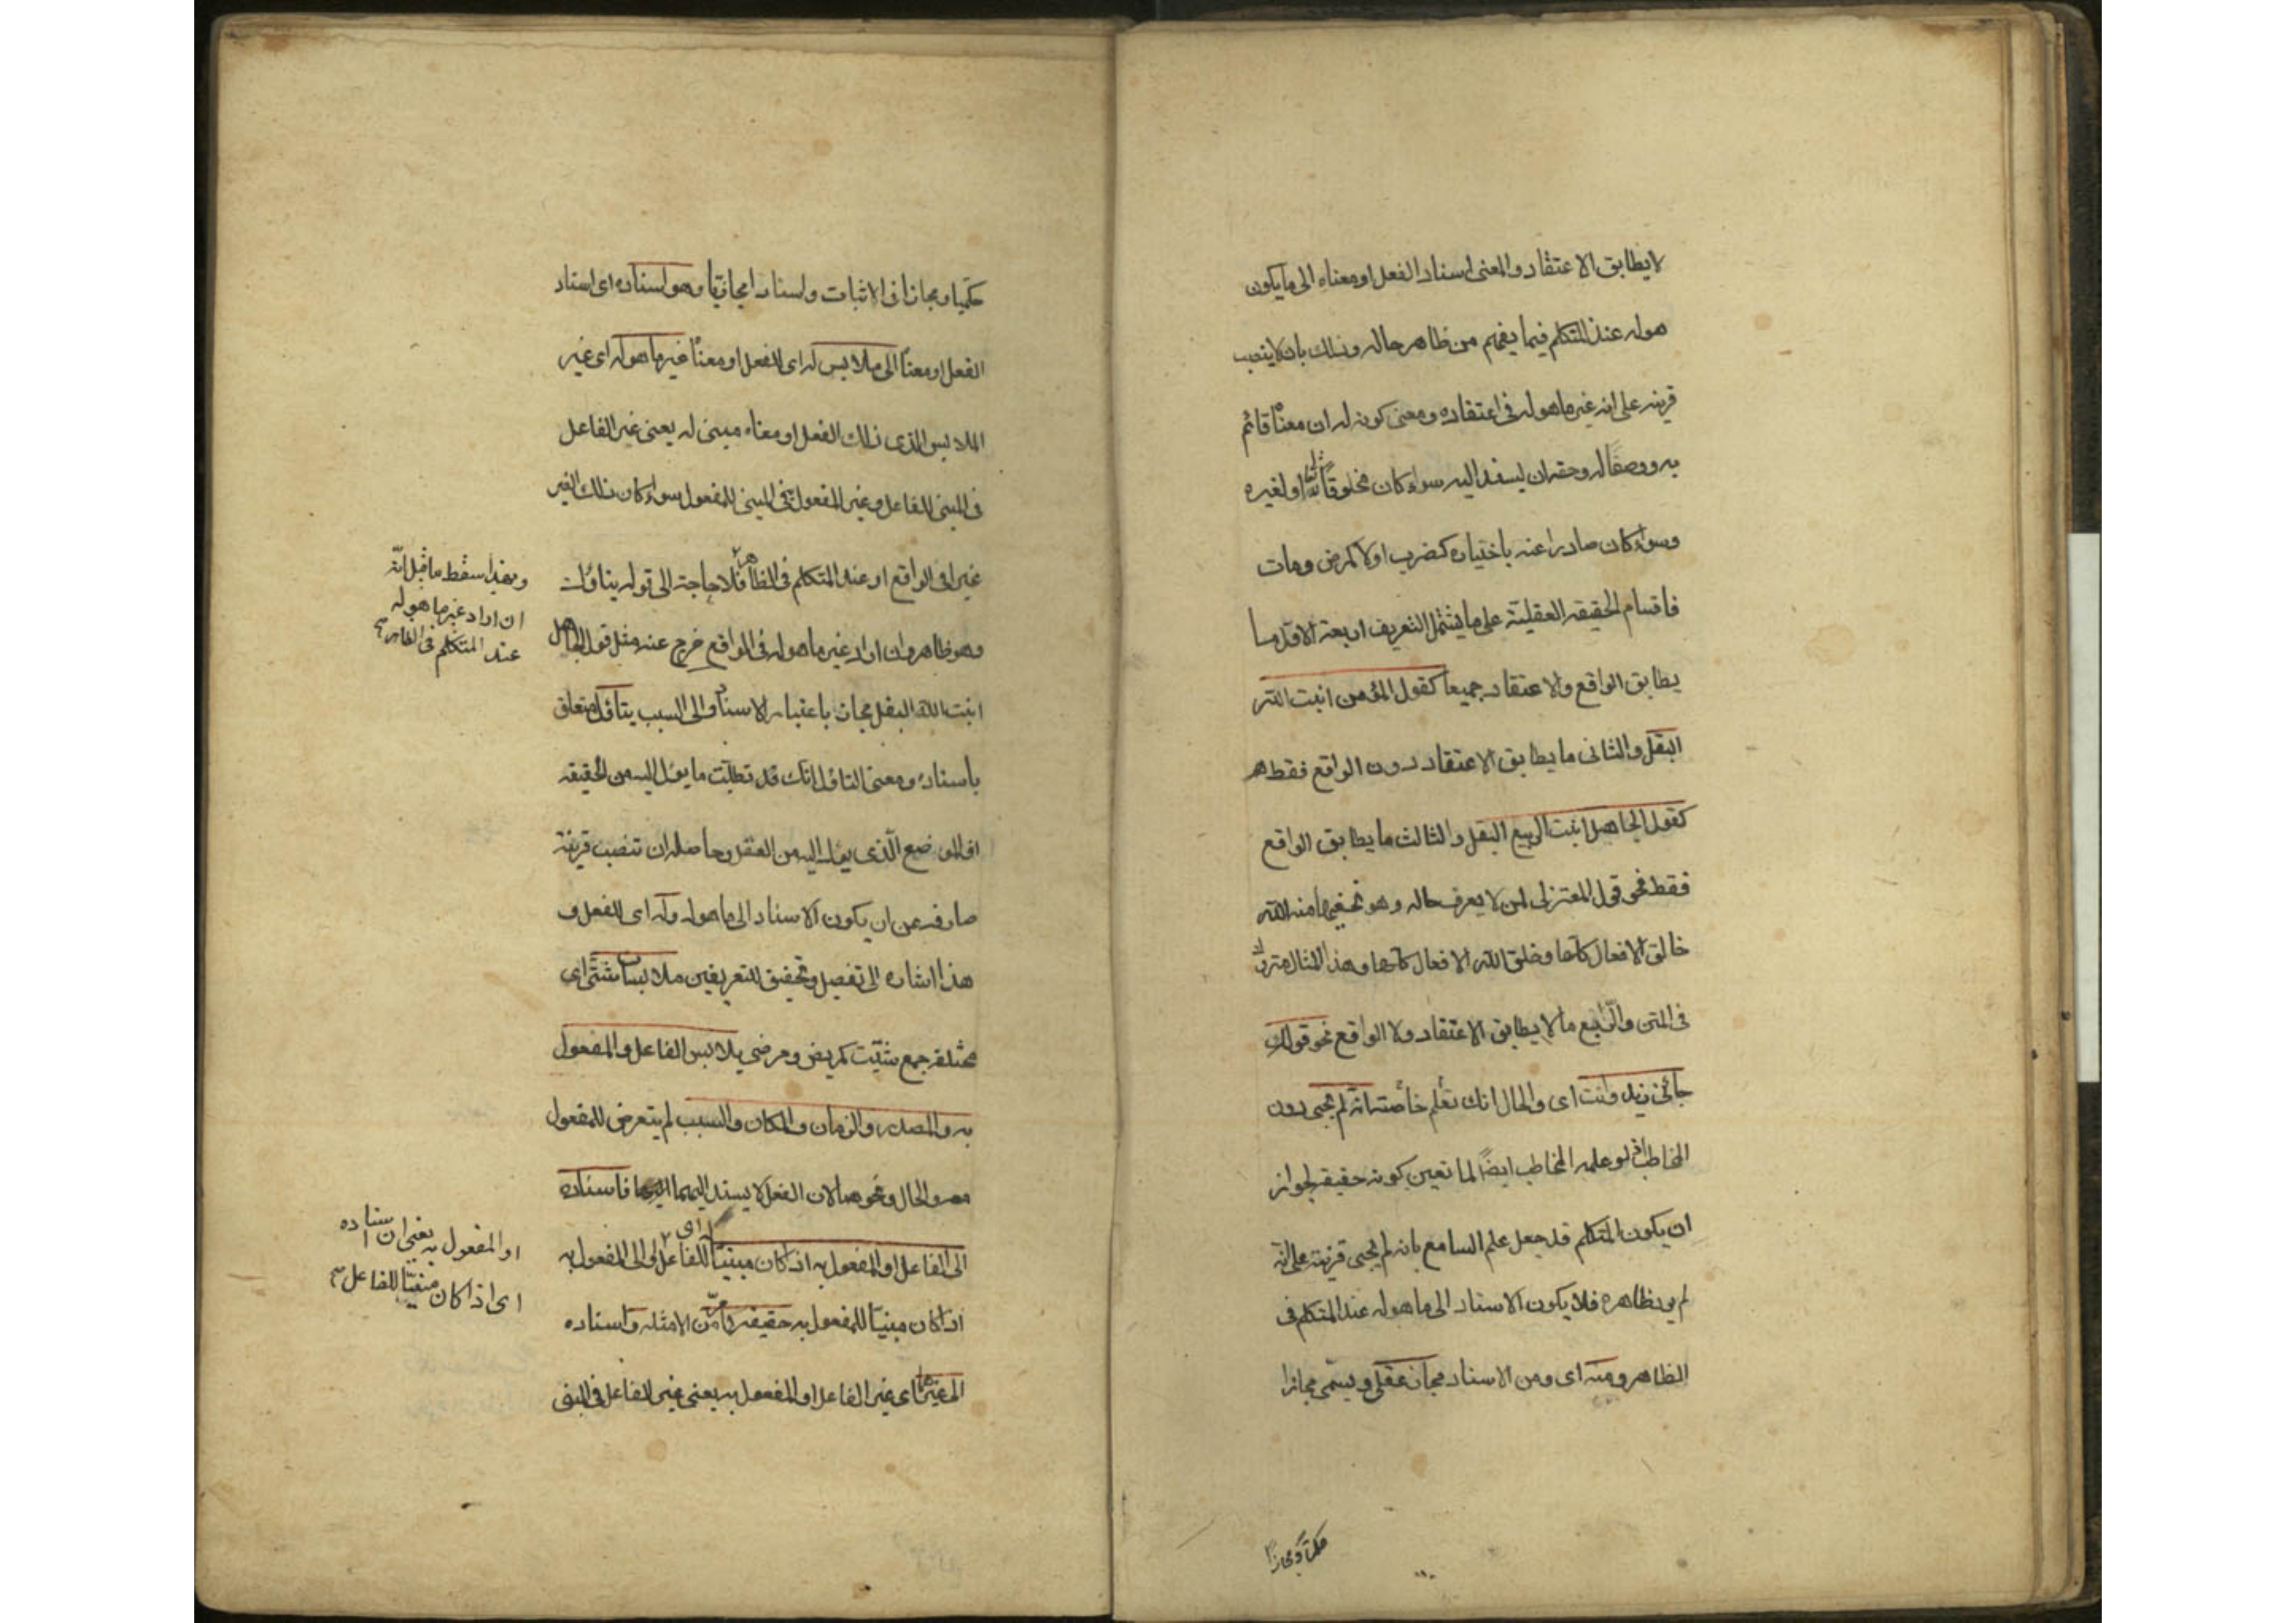 لا يطابق الاعتقاد والمعنى اسناد الفعل او معناه الى ما يكون
هو له عند المتكلم فيما يفهم من ظاهر حاله وذلك بان لا ينصب
قرينه على انه غير ما هو له فى اعتقاده ومعنى كونه له ان معناه قائم
به ووصفا له وحقه ان يسند اليه سواء كان مخلوقا لله او لغيره
وسواء كان صادرا عنه باختياره كضرب اولا كمرض ومات
فاقسام الحقيقه العقليّة على ما يشتمل التعريف اربعة الاوّل ما
يطابق الواقع والاعتقاد جميعا كقول المؤمن انبت الله
البقل والثانى ما يطابق الاعتقاد دون الواقع فقط
كقول الجاهل انبت الربيع البقل والثالث ما يطابق الواقع
فقط نحو قول المعتزلى لمن لا يعرف حاله وهو يخفيها منه الله
خالق الافعال كلّها وخلق الله الافعال كلّها وهذا المثال متروك
فى المتن والرّابع ما لا يطابق الاعتقاد ولا الواقع نحو قولك
جائنى زيد وانت اى والحال انك تعلم خاصّة انه لم يجئ دون
المخاطب اذ لو علمه المخاطب ايضًا لما تعين كونه حقيقه لجواز
ان يكون المتكلم قد جعل علم السامع بانه لم يجئ قرينة على انّه
لم يرد ظاهره فلا يكون الاسناد الى ما هو له عند المتكلم فى
الظاهر ومنه اى ومن الاسناد مجاز عقلى ويسمّى مجازا
حكميّا ومجازا فى الاثبات واسنادا مجازيّا وهو اسناده اى اسناد
الفعل او معناه الى ملابس له اى للفعل او معناه غير ما هو له اى غير
الملابس الذى ذلك الفعل او معناه مبنى له يعنى غير الفاعل
فى المبنى للفاعل وغير المفعول فى المبنى للمفعول سواء كان ذلك الغير
غيرا فى الواقع او عند المتكلم فى الظاهر فلا حاجة الى قوله بتاول
وهو ظاهر وان اراد غير ما هو له فى الواقع خرج عنه مثل قول الجاهل
انبت الله البقل مجاز باعتبار الاسناد الى السبب بتاوّل متعلق
باسناده ومعنى التاول انك قد تطلبت ما يؤل اليه من الحقيقه
او الموضع الّذى يؤل اليه من العقل وحاصله ان تنصب قرينة
صارفه عن ان يكون الاسناد الى ما هو له وله اى للفعل و
هذا اشاره الى تفصيل وتحقيق للتعريفين ملابسات شتّى اى
مختلفه جمع شتيت كمريض ومرضى يلابس الفاعل والمفعول
به والمصدر والزمان والمكان والسبب لم يتعرض للمفعول
معه والحال ونحوهما لان الفعل لا يسند اليهما فاسناده
الى الفاعل او المفعول به اذا كان مبنيّا للفاعل او الى المفعول به
اذا كان مبنيّا للمفعول به حقيقه كما مرّ من الامثله واسناده
الى غيرهما اى غير الفاعل او المفعول به يعنى غير الفاعل فى المبنى
وبهذا سقط ما قيل انّه
ان اراد غير ما هو له
عند المتكلم فى الظاهر
او المفعول به يعنى ان اسناده
اى اذا كان مبنيّا للفاعل